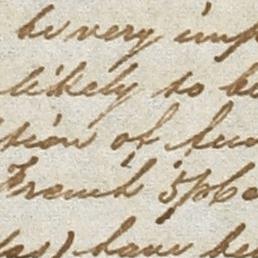 be very imp
likely to be
tion of
French
) have be